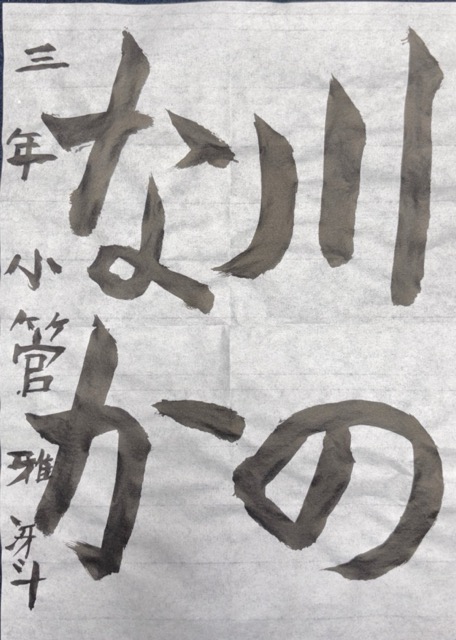 川の
なか
三年 小管雅冴斗